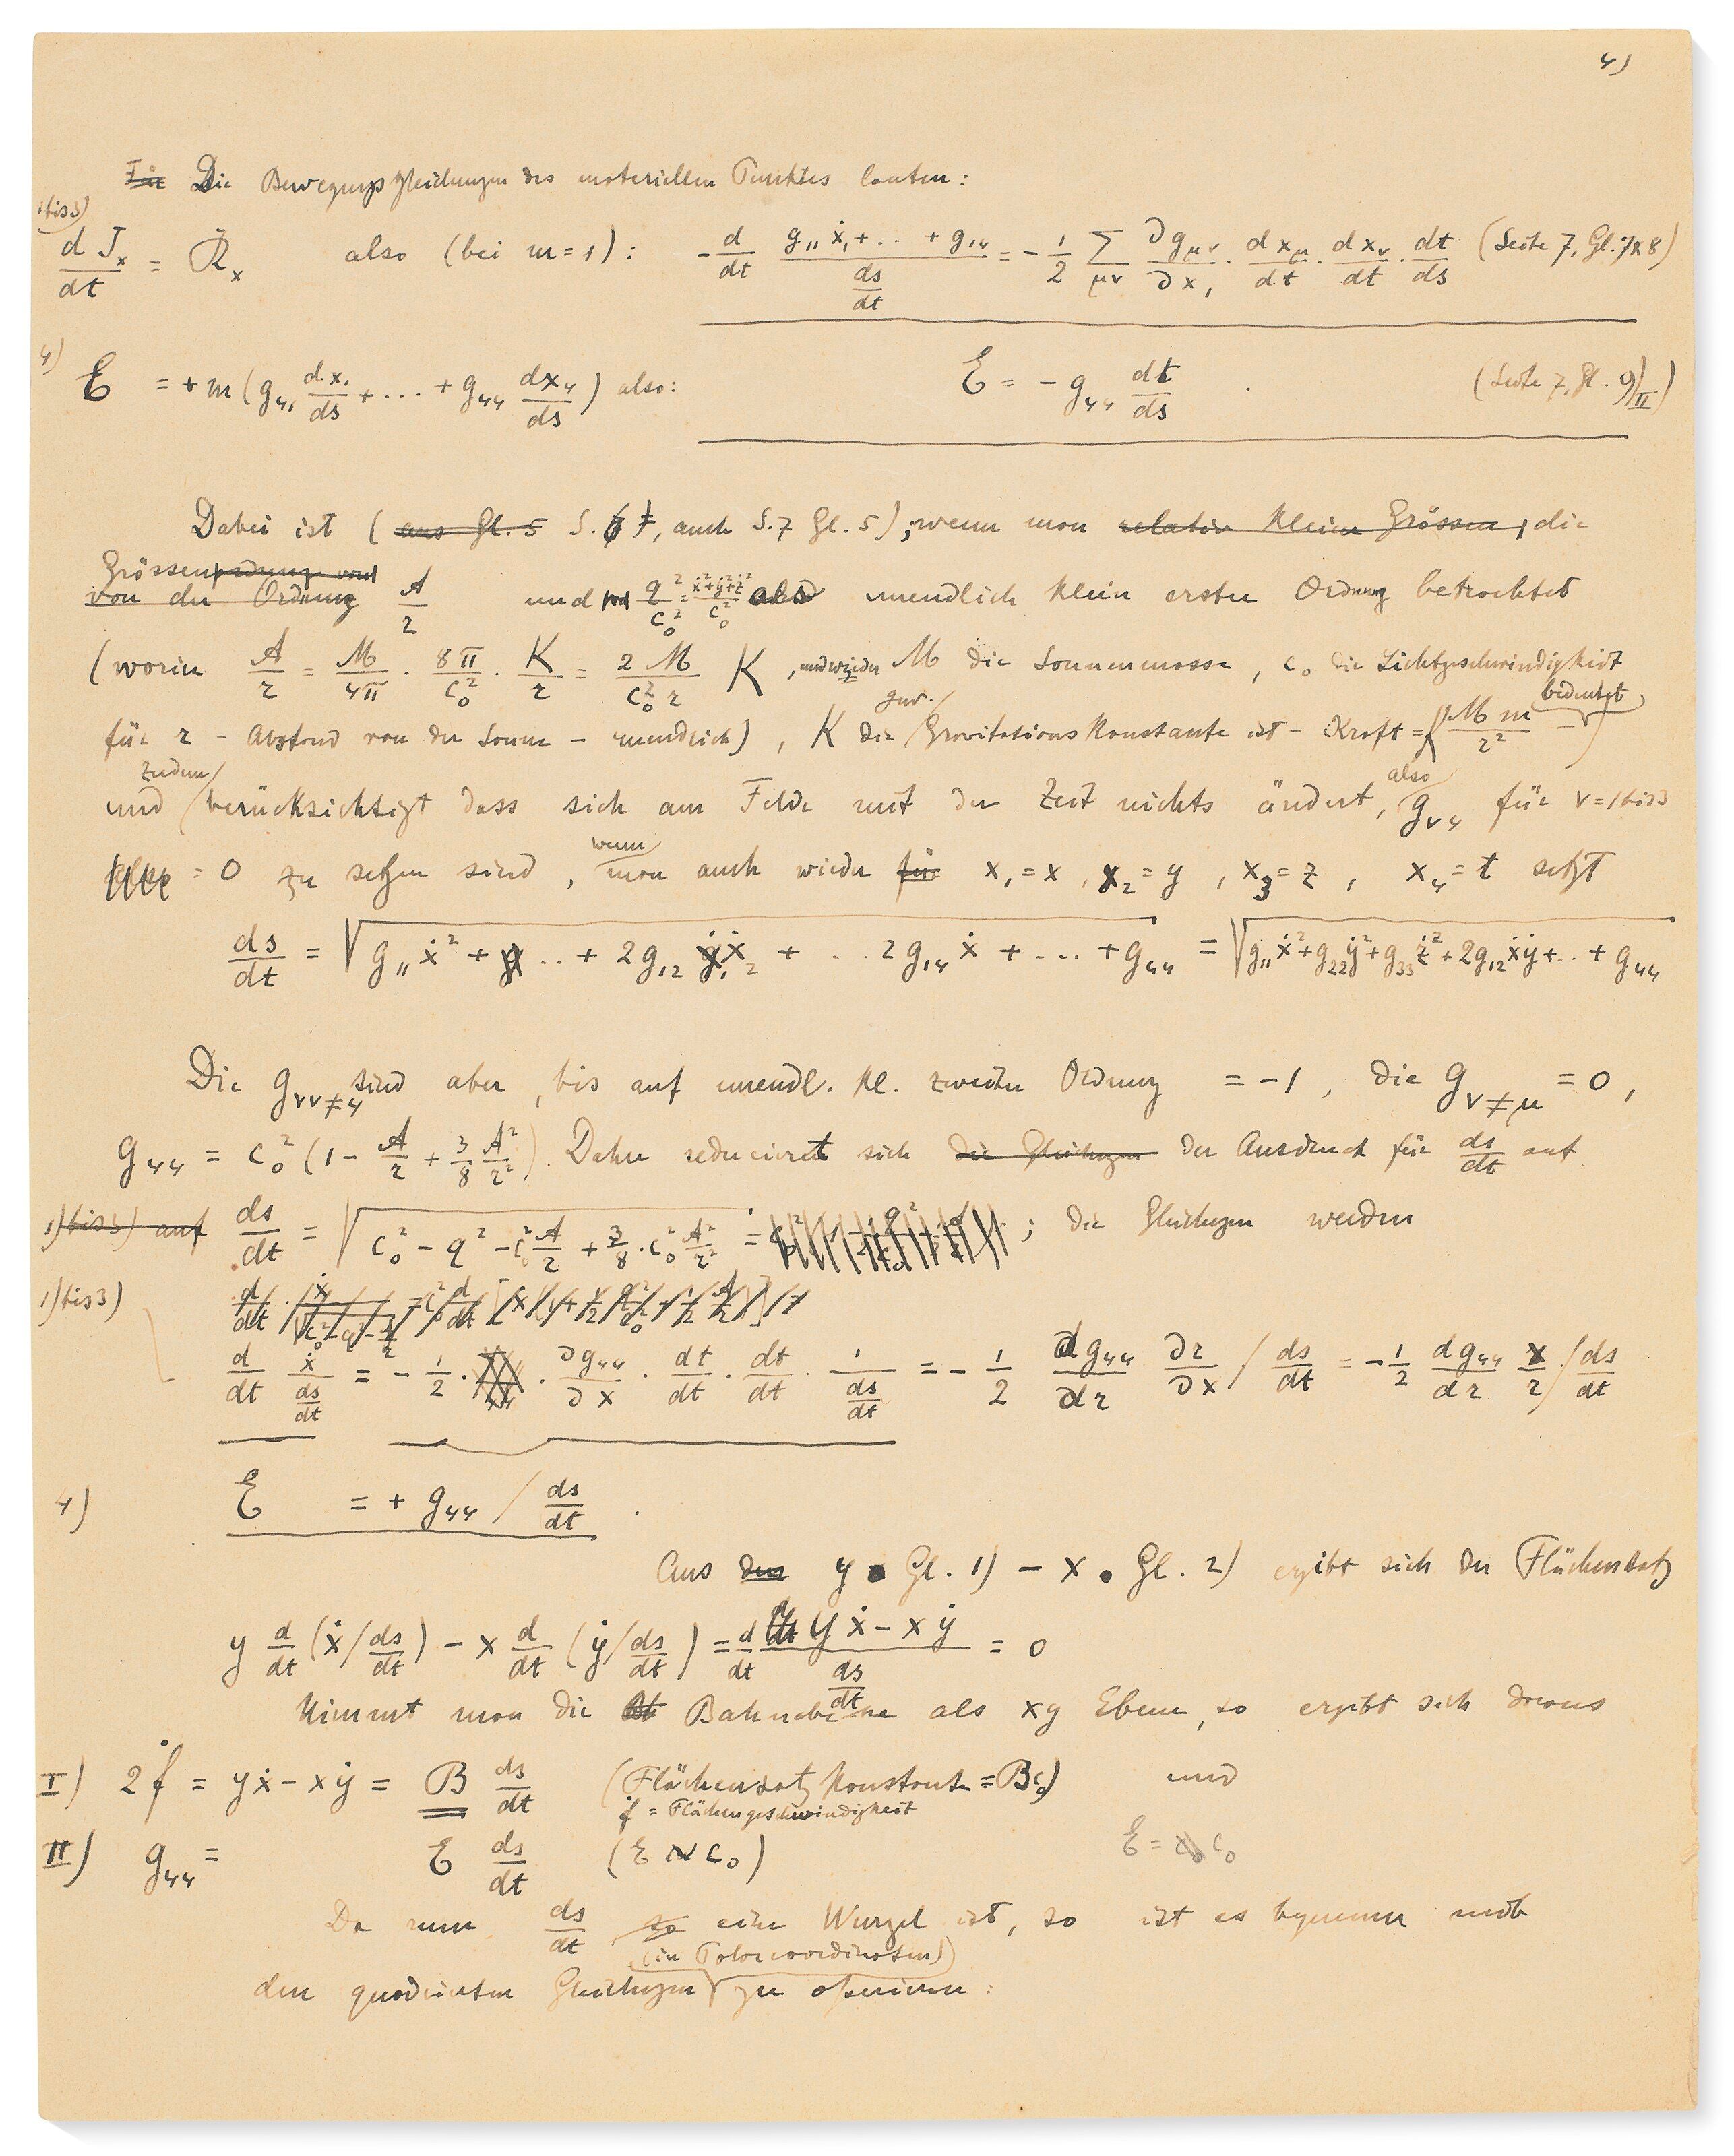 4)
Die Bewegungsgleichungen des materiellen Punktes lauten:
1bis3)
dJₓ/dt = 𝔎ₓ also (bei m=1): - d/dt (g₁₁ẋ₁+ .. + g₁₄)/(ds/dt) = - 1/2 Σ_μν ∂g_μν/∂x₁ · dx_μ/dt · dx_ν/dt · dt/ds (Seite 7, Gl. 7&8)
4) E = + m (g₄₁ dx₁/ds + ... + g₄₄ dx₄/ds) also: E = - g₄₄ dt/ds . (Seite 7, Gl. 9) II)
Dabei ist ( aus Gl. 5 S. 7, auch S. 7 Gl. 5), wenn man relativ kleine Grössen, die
Grössenordnung von
von der Ordnung A/r und q²/c₀² = (ẋ²+ẏ²+ż²)/c₀² als unendlich klein erster Ordnung betrachtet
(worin A/r = M/4π · 8π/c₀² · K/r = 2M/(c₀² r) K , und wieder M die Sonnenmasse, c₀ die Lichtgeschwindigkeit
bedeutet
für r - Abstand von der Sonne - unendlich), K die gew. Gravitationskonstante ist - Kraft = K (M m)/r² -)
und zudem berücksichtigt dass sich am Felde mit der Zeit nichts ändert, also g_ν4 für ν=1bis3
= 0 zu setzen sind, wenn man auch wieder für x₁ = x , x₂ = y , x₃ = z , x₄ = t setzt
ds/dt = √(g₁₁ẋ² + .. + 2g₁₂ ẋ₂ + .. 2g₁₄ẋ + ... + g₄₄) = √(g₁₁ẋ²+g₂₂ẏ²+g₃₃ż²+2g₁₂ẋẏ+..+g₄₄)
Die g_νν≠4 sind aber, bis auf unendl. kl. zweiter Ordnung = -1, die g_ν≠μ = 0,
g₄₄ = c₀² (1 - A/r + 3/8 A²/r²). Daher reducieret sich die Gleichungen der Ausdruck für ds/dt auf
1)bis3) auf ds/dt = √(c₀² - q² - c₀² A/r + 3/8 · c₀² A²/r²) = ; die Gleichungen werden
1)bis3)
d/dt ẋ/(ds/dt) = - 1/2 · ∂g₄₄/∂x · dt/dt · dt/dt · 1/(ds/dt) = - 1/2 dg₄₄/dr ∂r/∂x / ds/dt = - 1/2 dg₄₄/dr x/r / ds/dt
4) E = + g₄₄ / ds/dt .
Aus den y · Gl. 1) - x · Gl. 2) ergibt sich der Flächensatz
y d/dt (ẋ/ds/dt) - x d/dt (ẏ/ds/dt) = d/dt (yẋ - xẏ)/(ds/dt) = 0
Nimmt man die Bahnebene als xy Ebene, so ergibt sich daraus
I) 2ḟ = yẋ - xẏ = B ds/dt (Flächensatz Konstante = Bc₀) und
ḟ = Flächengeschwindigkeit
II) g₄₄ = E ds/dt (E ∾ c₀) E = c₀
Da nun ds/dt so eine Wurzel ist, so ist es bequemer mit
(in Polarcoordinaten)
den quadrierten Gleichungen zu operieren: